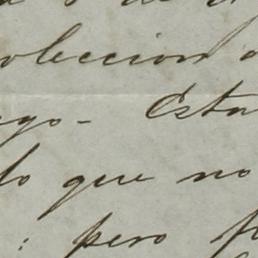 oleccion
ygo - Esta
lo que no
: pero